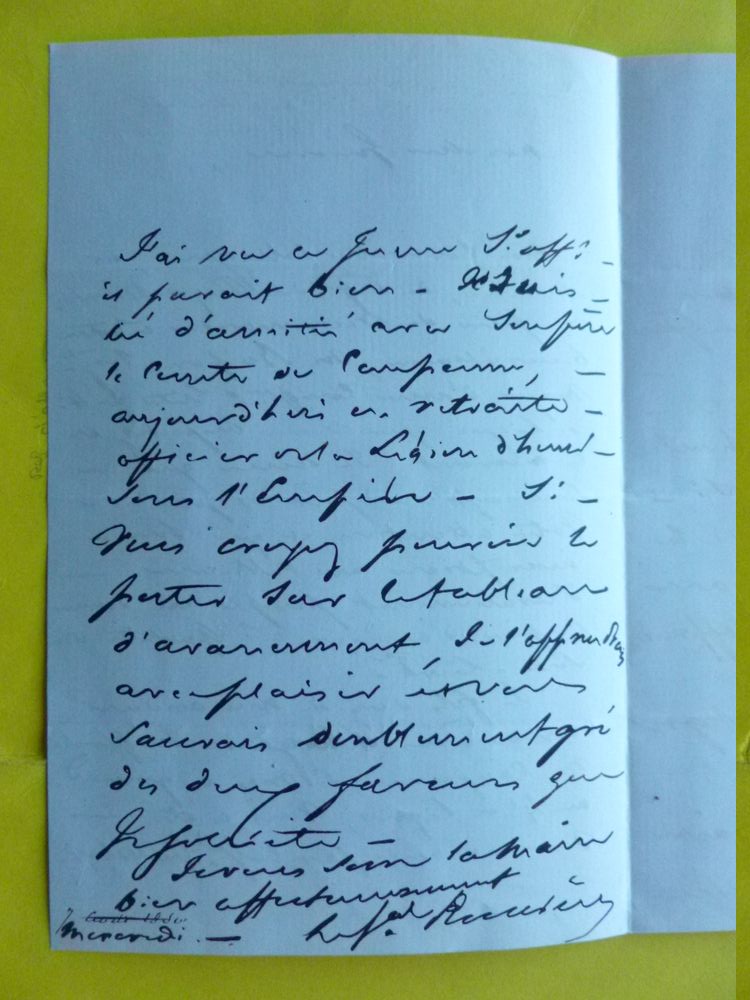 J'ai vu ce jeune S. off. -
il parait bien - Je suis -
lié d'amitié avec son père
le Comte de Campenne, -
aujourd'hui en retraite -
officier de la Légion d'honn. -
sous l'Empire - Si -
Vous croyez pouvoir le
porter sur le tableau
d'avancement, je l'apprendrai
avec plaisir et vous
saurais doublement gré
des deux faveurs que
Je sollicite -
Je vous serre la main
bien affectueusement
Mercredi. -